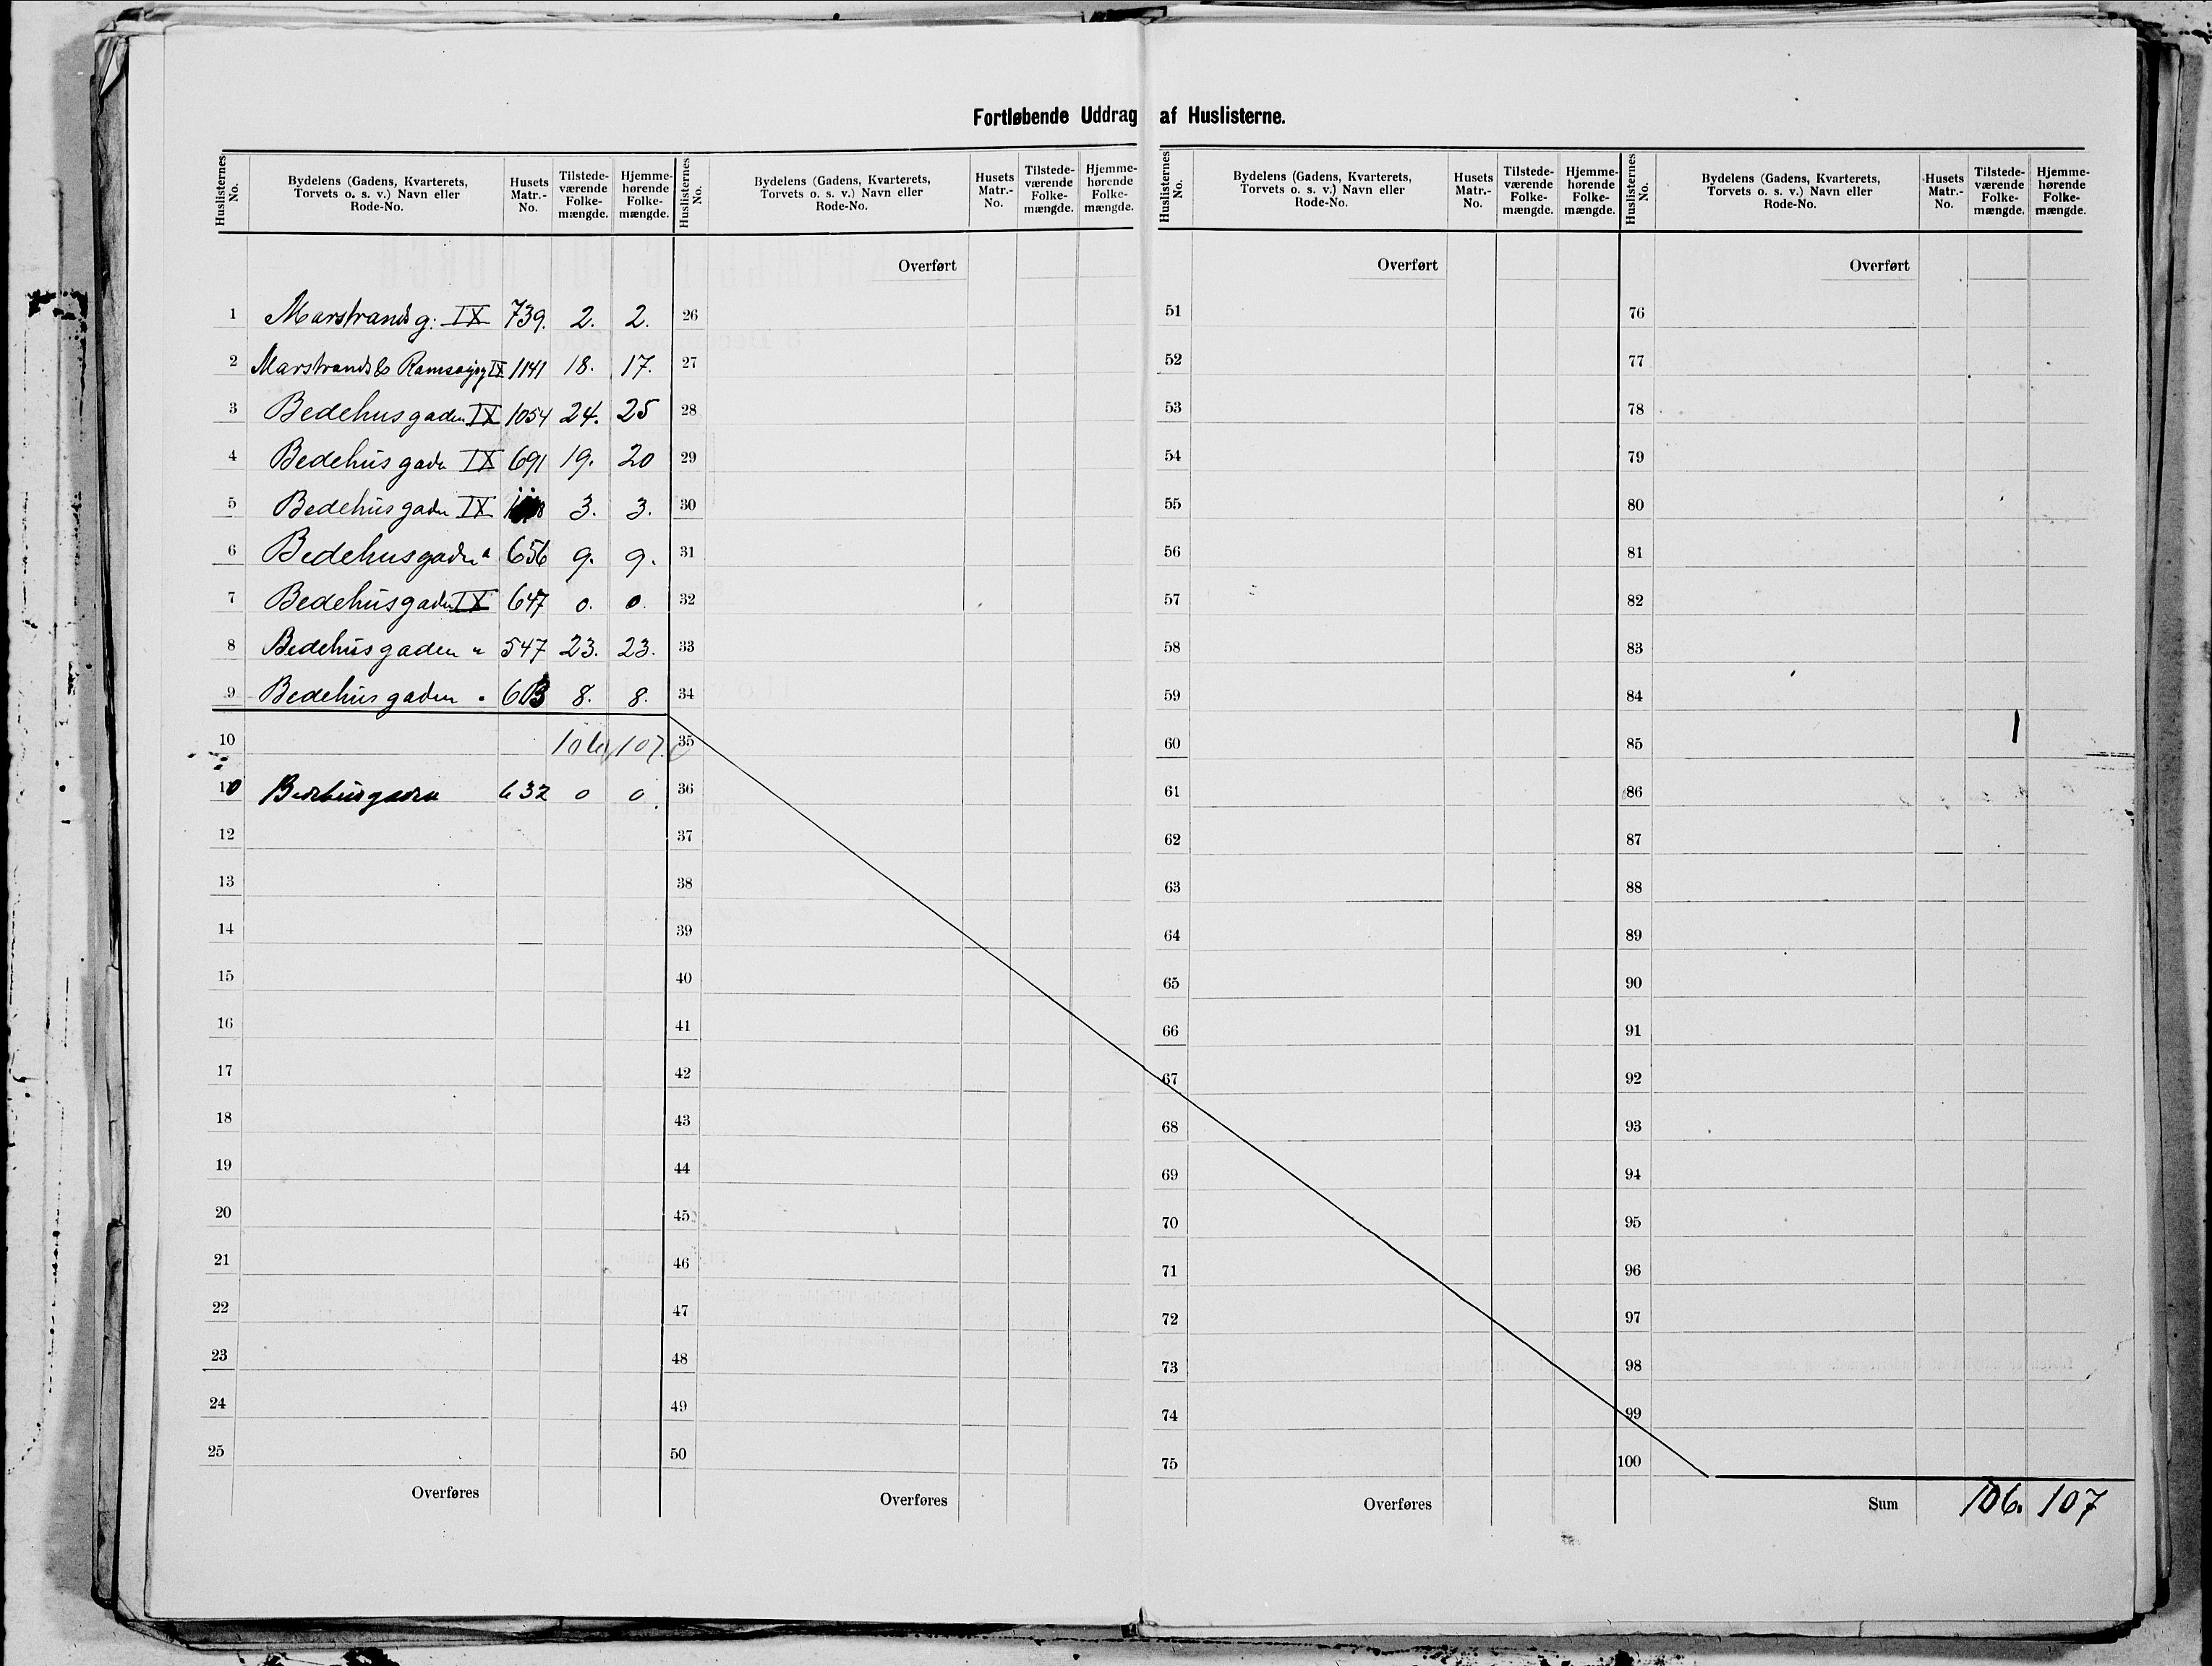 Fortløbende Uddrag af Huslisterne.
Huslisternes No. Bydelens (Gadens, Kvarterets, Torvets o. s. v.) Navn eller Rode-No. Husets Matr.-No. Tilstedeværende Folkemængde. Hjemmehørende Folkemængde.
Huslisternes No. Bydelens (Gadens, Kvarterets, Torvets o. s. v.) Navn eller Rode-No. Husets Matr.-No. Tilstede-værende Folke-mængde. Hjemme-hørende Folke-mængde.
Huslisternes No. Bydelens (Gadens, Kvarterets, Torvets o. s. v.) Navn eller Rode-No. Husets Matr.-No. Tilstede-værende Folke-mængde. Hjemme-hørende Folke-mængde.
Huslisternes No. Bydelens (Gadens, Kvarterets, Torvets o. s. v.) Navn eller Rode-No. Husets Matr.-No. Tilstede-værende Folke-mængde. Hjemme-hørende Folke-mængde.
Overført Overført Overført
1 Marstrands g. IX 739. 2. 2. 26 51 76
2 Marstrands & IX 1141 18. 17. 27 52 77
3 Bedehusgaden IX 1054 24. 25 28 53 78
4 Bedehusgaden IX 691 19. 20 29 54 79
5 Bedehusgaden IX 3. 3. 30 55 80
6 Bedehusgaden " 656 9. 9. 31 56 81
7 Bedehusgaden IX 647 0. 0. 32 57 82
8 Bedehusgaden " 547 23. 23. 33 58 83
9 Bedehusgaden " 603 8. 8. 34 59 84
10 106 107. 35 60 85
10 Bedehusgaden 632 0 0. 36 61 86
12 37 62 87
13 38 63 88
14 39 64 89
15 40 65 90
16 41 66 91
17 42 67 92
18 43 68 93
19 44 69 94
20 45 70 95
21 46 71 96
22 47 72 97
23 48 73 98
24 49 74 99
25 50 75 100
Overføres Overføres Overføres Sum 106. 107